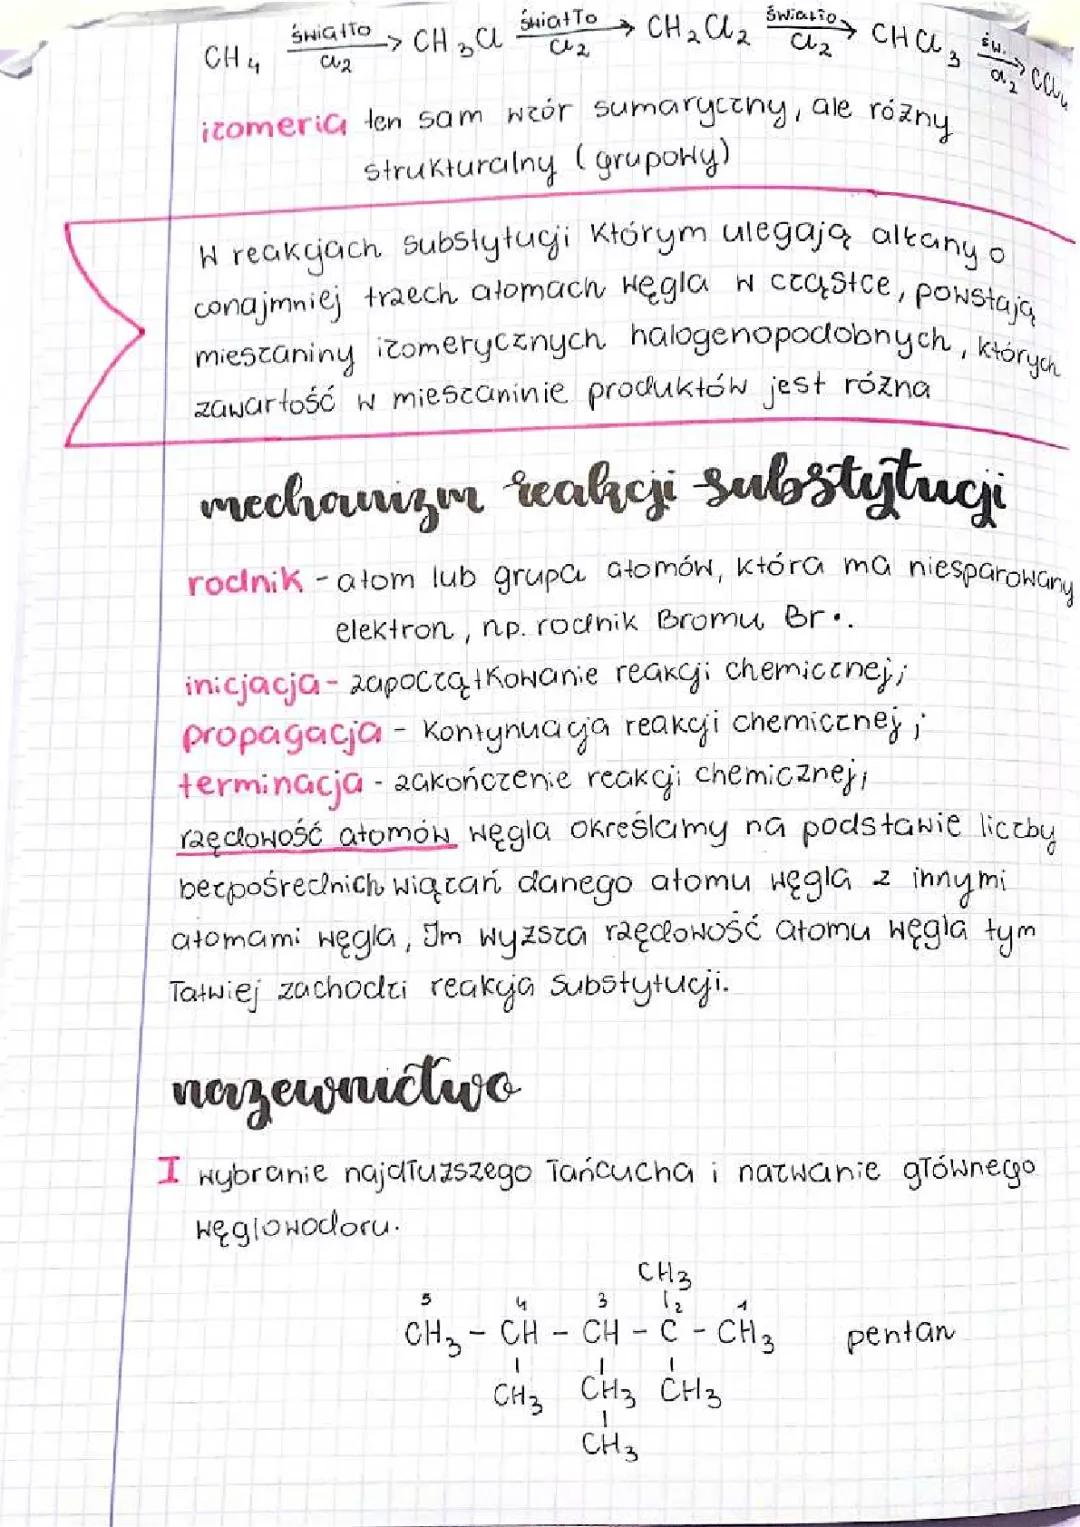 CH₄ światło/Cl₂ → CH₃Cl światło/Cl₂ → CH₂Cl₂ światło/Cl₂ → CHCl₃ św./Cl₂ → CCl₄
izomeria ten sam wzór sumaryczny, ale różny
strukturalny (grupowy)
W reakcjach substytucji którym ulegają alkany o
conajmniej trzech atomach węgla w cząstce, powstają
mieszaniny izomerycznych halogenopodobnych, których
zawartość w mieszaninie produktów jest różna
mechanizm reakcji substytucji
rodnik - atom lub grupa atomów, która ma niesparowany
elektron, np. rodnik Bromu Br•.
inicjacja - zapoczątkowanie reakcji chemicznej;
propagacja - kontynuacja reakcji chemicznej;
terminacja - zakończenie reakcji chemicznej;
rzędowość atomów węgla określamy na podstawie liczby
bezpośrednich wiązań danego atomu węgla z innymi
atomami węgla, Im wyższa rzędowość atomu węgla tym
łatwiej zachodzi reakcja substytucji.
nazewnictwo
I wybranie najdłuższego łańcucha i nazwanie głównego
węglowodoru.
CH₃
5 4 3 2 1
CH₃ - CH - CH - C - CH₃ pentan
CH₃ CH₃ CH₃
CH₃